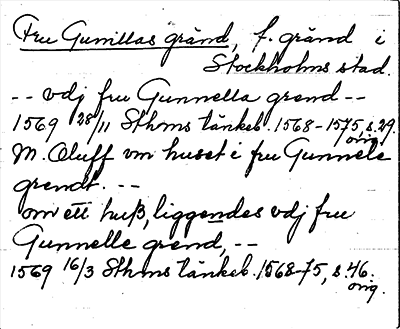 Fru Gunillas gränd, f. gränd i
Stockholms stad.
-- vdj fru Gunnella grend --
1569 28/11 Sthms tänkeb. 1568-1575, s. 29.
orig.
M. Oluff om huset i fru Gunnele
grendt. --
om ett huß, liggendes vdj fru
Gunnelle grend, --
1569 16/3 Sthms tänkeb. 1568-75, s. 46.
orig.